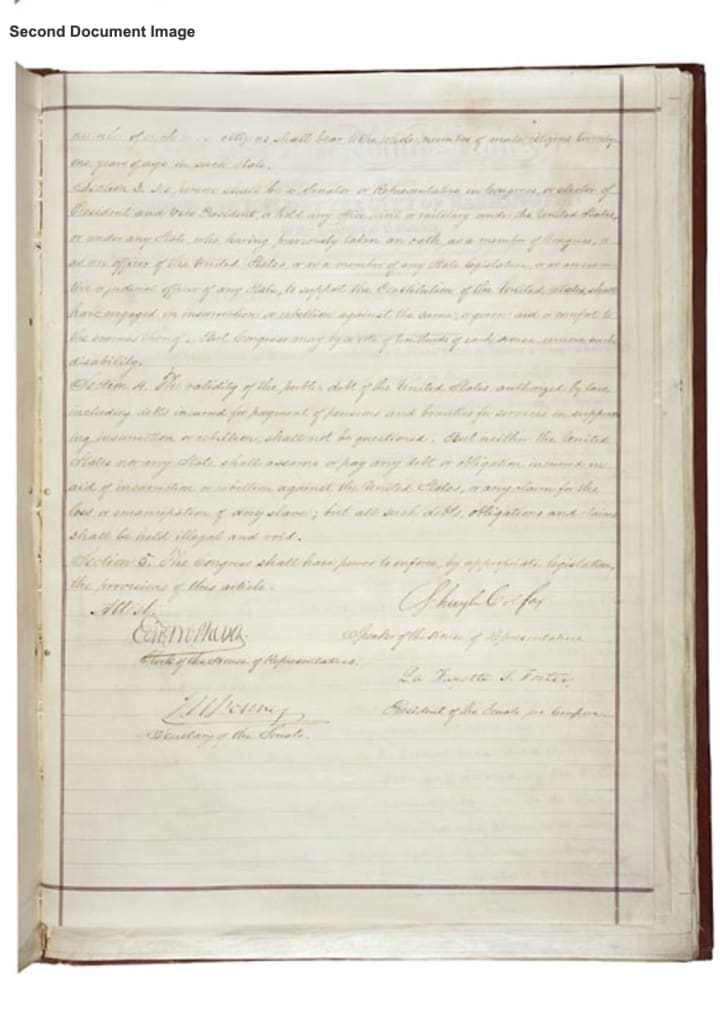 Second Document Image
number of such citizens shall bear to the whole number of male citizens twenty
one years of age in such State.
Section 3. No person shall be a Senator or Representative in Congress, or elector of
President and Vice President, or hold any office, civil or military, under the United States,
or under any State, who, having previously taken an oath, as a member of Congress, or
as an officer of the United States, or as a member of any State legislature, or as an execu
tive or judicial officer of any State, to support the Constitution of the United States, shall
have engaged in insurrection or rebellion against the same, or given aid or comfort to
the enemies thereof. But Congress may by a vote of two thirds of each House, remove such
disability.
Section 4. The validity of the public debt of the United States, authorized by law,
including debts incurred for payment of pensions and bounties for services in suppress
ing insurrection or rebellion, shall not be questioned. But neither the United
States nor any State shall assume or pay any debt or obligation incurred in
aid of insurrection or rebellion against the United States, or any claim for the
loss or emancipation of any slave; but all such debts, obligations and claims
shall be held illegal and void.
Section 5. The Congress shall have power to enforce, by appropriate legislation,
the provisions of this article.
Attest,
Schuyler Colfax
Edwd McPherson.
Speaker of the House of Representatives
Clerk of the House of Representatives.
La Fayette S. Foster,
President of the Senate pro tempore.
Secretary of the Senate.